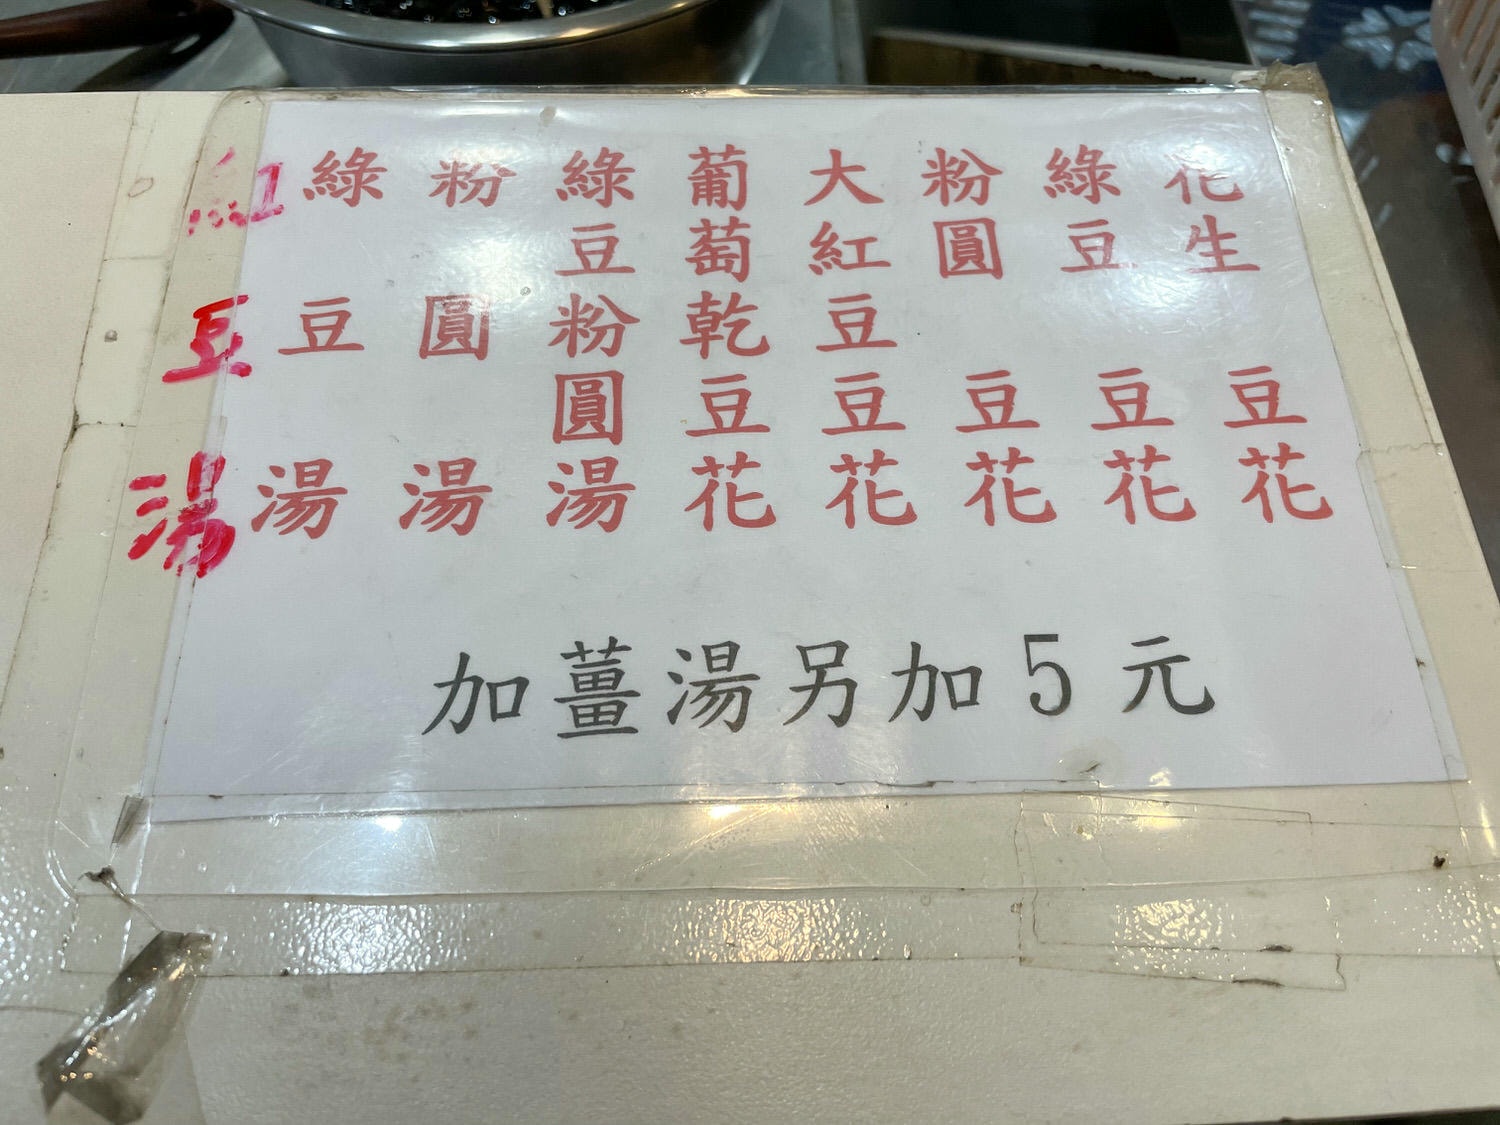 花生豆花
綠豆豆花
粉圓豆花
大紅豆豆花
葡萄乾豆花
綠豆粉圓湯
粉圓湯
綠豆湯
紅豆湯
加薑湯另加5元